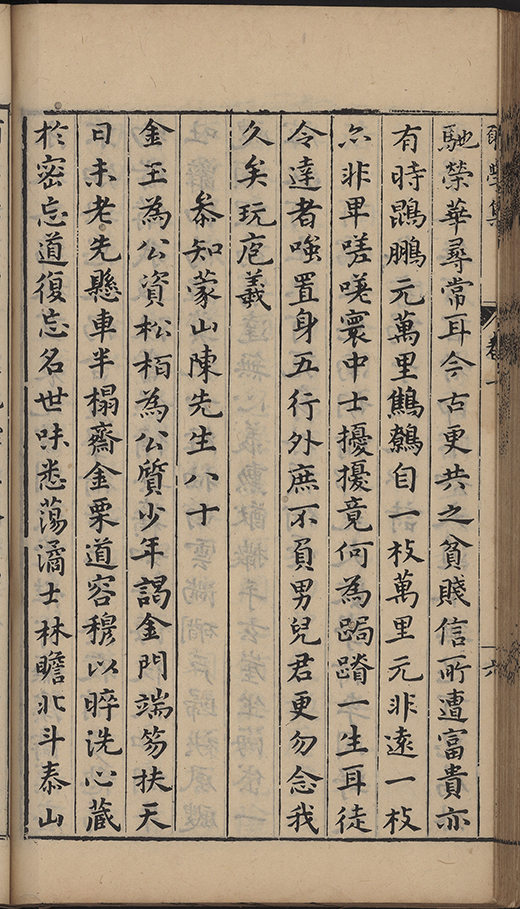 馳榮華尋常耳今古更共之貧賤信所遭富貴亦
有時鵾鵬元萬里鷦鷯自一枝萬里元非遠一枝
亦非卑嗟嗟寰中士擾擾竟何為跼蹐一生耳徒
令達者嗤置身五行外庶不負男兒君更勿念我
久矣玩庖羲
叅知蒙山陳先生八十
金玉為公資松栢為公質少年謁金門端笏扶天
日未老先懸車半榻齋金粟道容穆以睟洗心藏
於密忘道復忘名世味悉蕩潏士林瞻北斗泰山